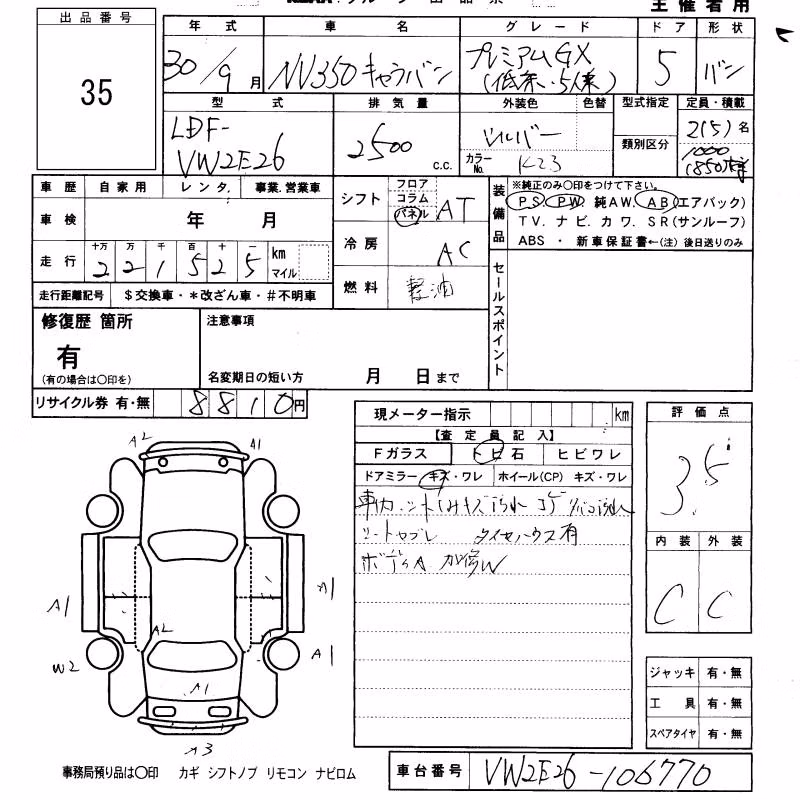 主催者用
出品番号
35
年式 車名 グレード ドア 形状
30/9月 NV350キャラバン プレミアムGX 5 バン
(低床・5人乗)
型式 排気量 外装色 色替 型式指定 定員・積載
LDF-
VW2E26 2500 c.c. シルバー 類別区分 2(5)名
カラーNo. K23 1000
(850)kg
車歴 自家用 レンタ. 事業.営業車
車検 年 月
走行 十万 万 千 百 十 一 km
2 2 1 5 2 5 マイル
走行距離記号 $交換車・*改ざん車・#不明車
シフト フロア コラム パネル AT
冷房 AC
燃料 軽油
装備品 ※純正のみ〇印をつけて下さい。
PS PW 純AW. AB(エアバック)
TV. ナビ. カワ. SR(サンルーフ)
ABS ・ 新車保証書←(注)後日送りのみ
セールスポイント
修復歴 箇所
有
(有の場合は〇印を)
注意事項
名変期日の短い方 月 日まで
リサイクル券 有・無 8810円
現メーター指示 km
【査定員記入】
Fガラス トビ石 ヒビワレ
ドアミラー キズ・ワレ ホイール(CP) キズ・ワレ
タイヤハウス有
評価点
3.5
内装 外装
C C
A2 A1
A1 A2 A1
W2 A1 A1
A3
ジャッキ 有・無
工具 有・無
スペアタイヤ 有・無
事務局預り品は〇印 カギ シフトノブ リモコン ナビロム
車台番号 VW2E26-106770